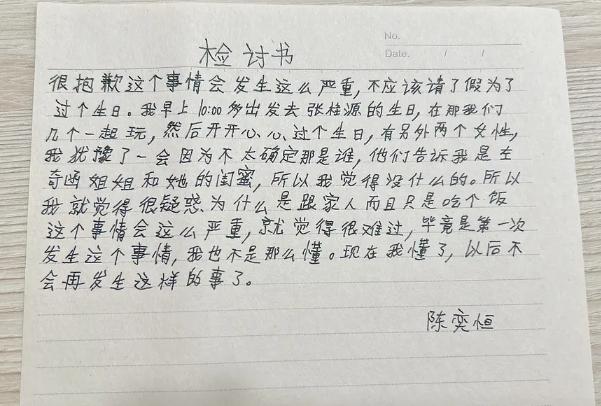 检讨书
No.
Date. / /
很抱歉这个事情会发生这么严重,不应该请了假为了
过个生日。我早上10:00多出发去张桂源的生日,在那我们
几个一起玩,然后开开心心过个生日,有另外两个女性,
我犹豫了一会因为不太确定那是谁,他们告诉我是左
奇函姐姐和她的闺蜜,所以我觉得没什么的。所以
我就觉得很疑惑、为什么是跟家人而且只是吃个饭
这个事情会这么严重,就觉得很难过,毕竟是第一次
发生这个事情,我也不是那么懂。现在我懂了,以后不
会再发生这样的事了。
陈奕恒